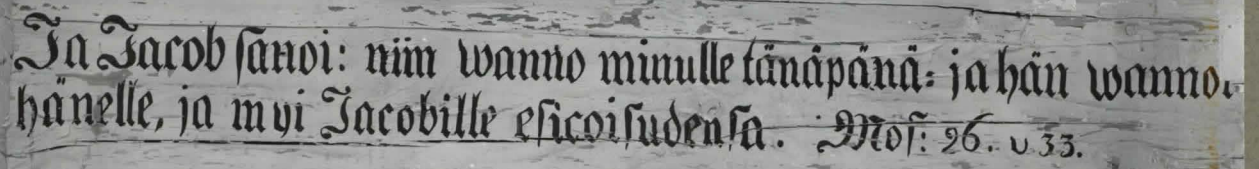 Ja Jacob ſanoi: niin wanno minulle tänäpänä: ja hän wanno.
hänelle, ja myi Jacobille eſicoiſudenſa. Moſ: 26. v 33.